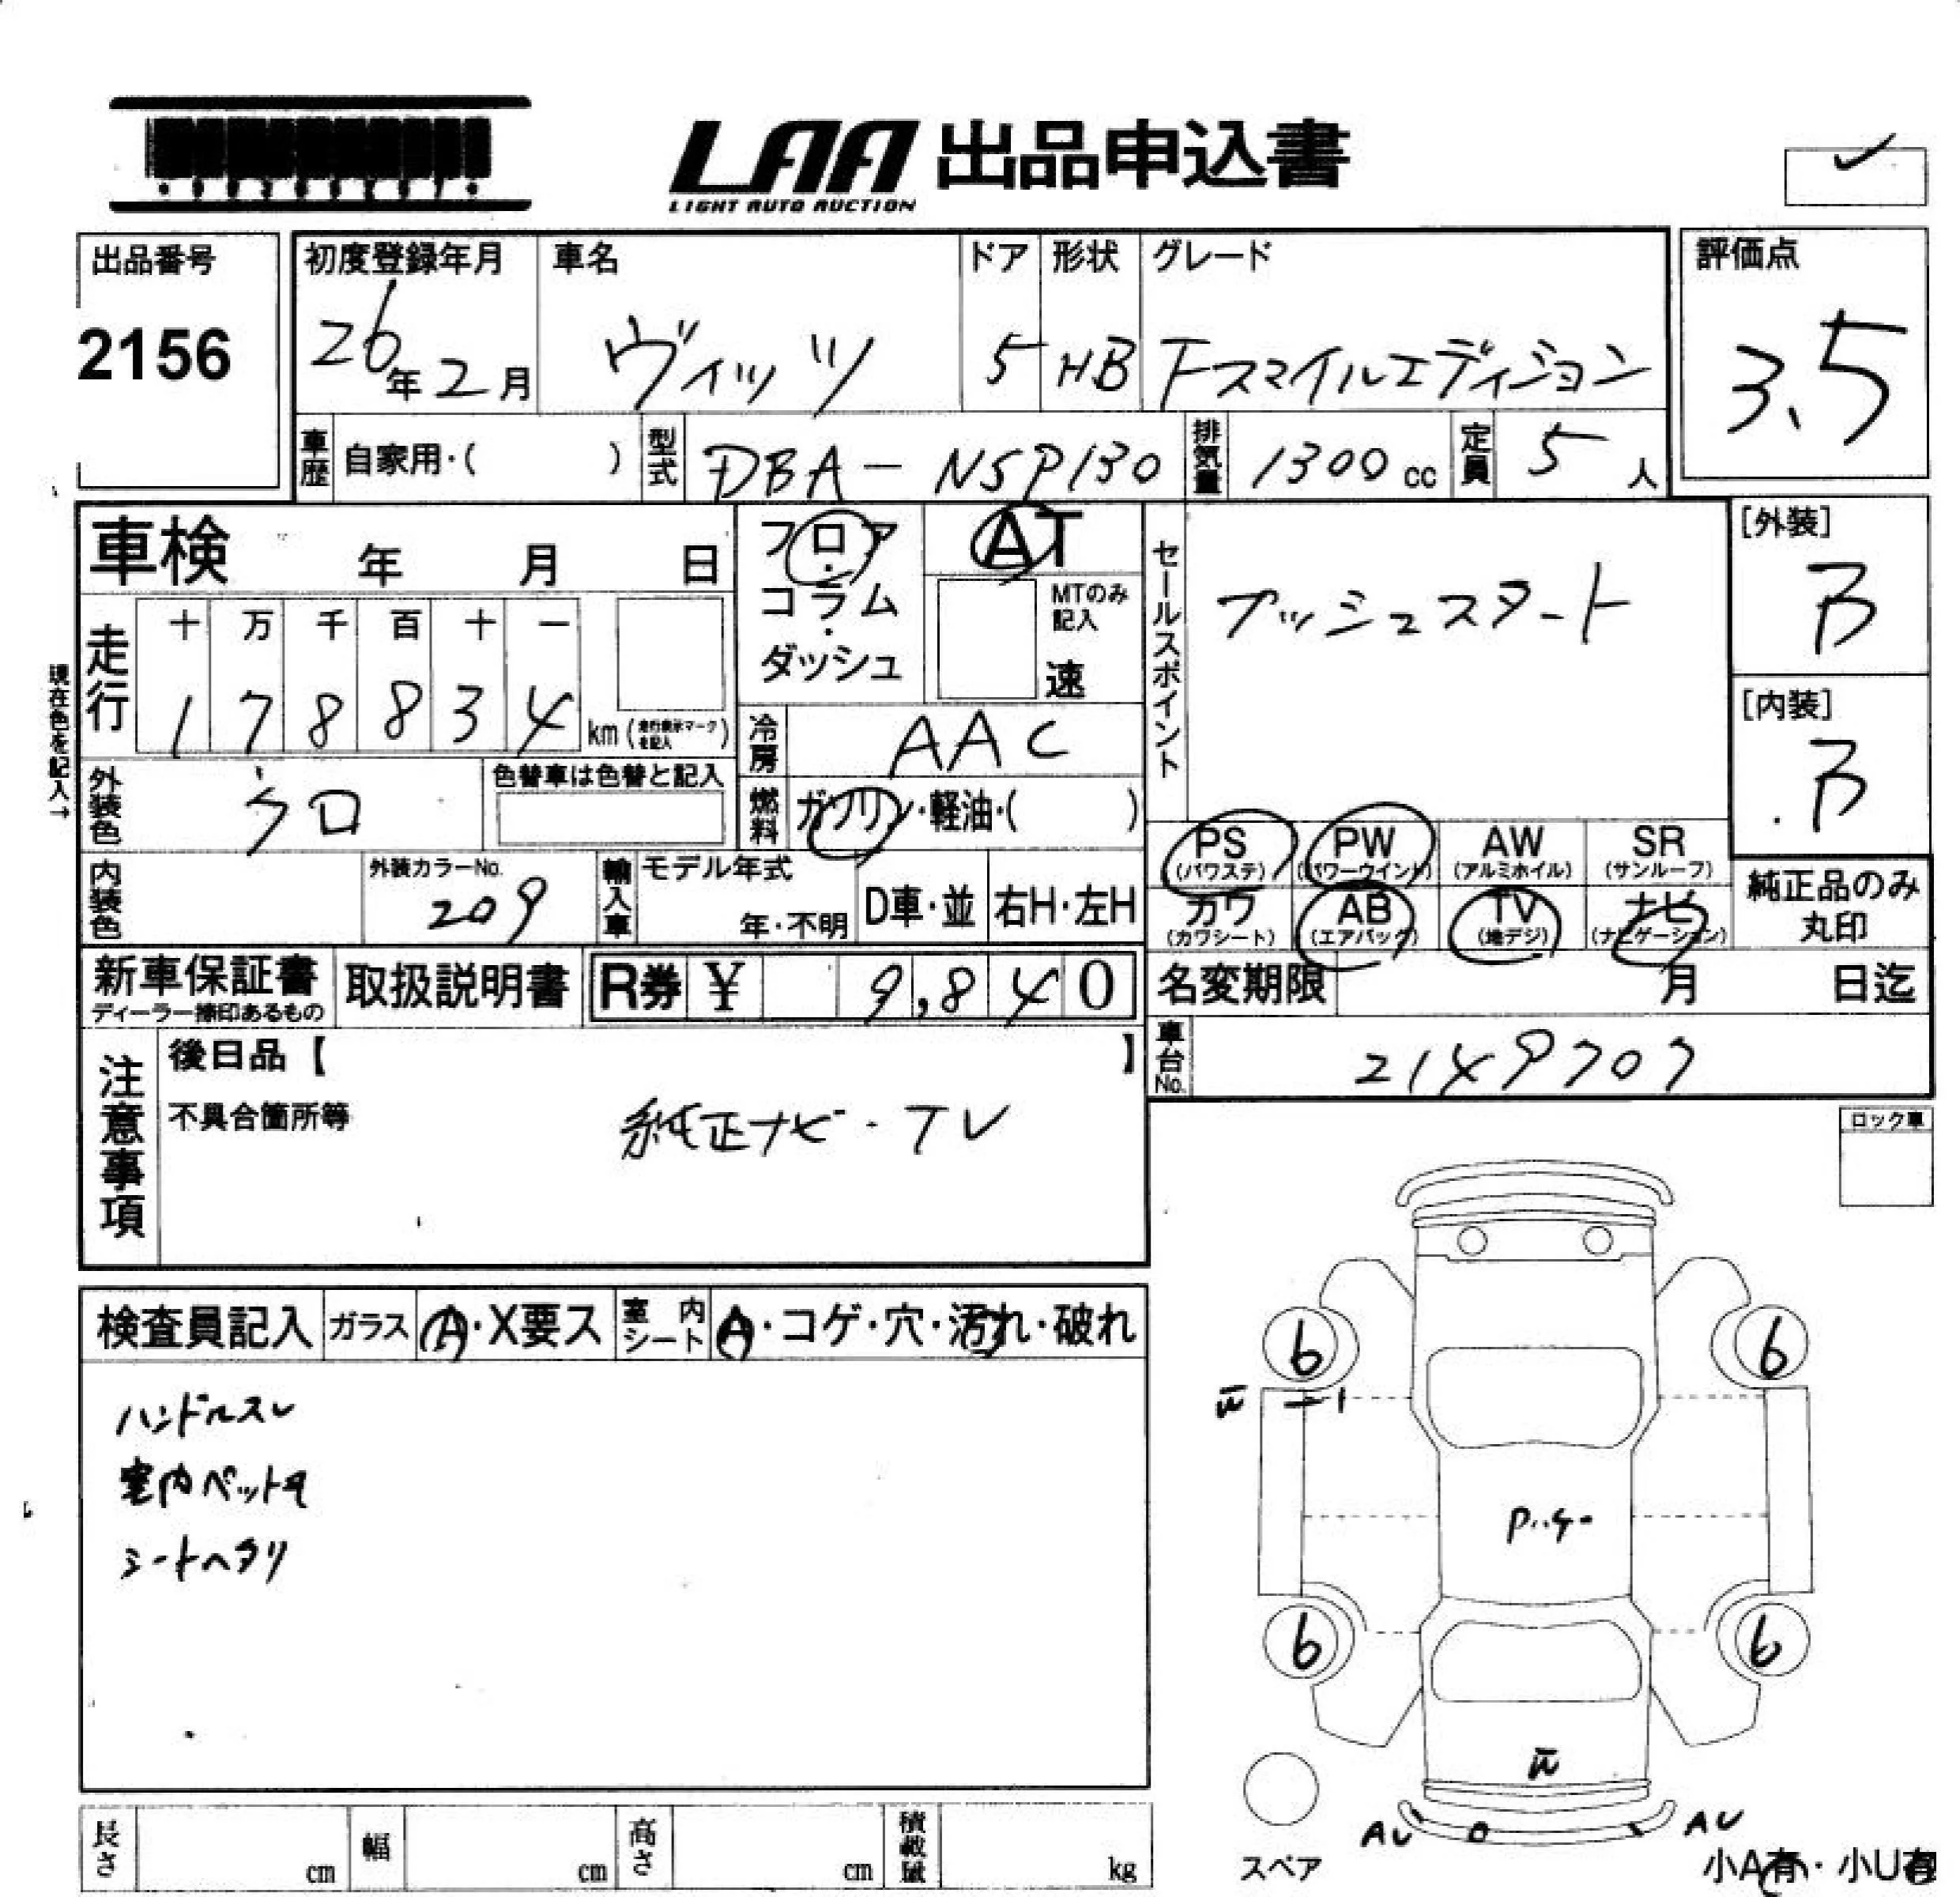 LAA 出品申込書
LIGHT AUTO AUCTION
出品番号
2156
初度登録年月
26年2月
車名
ヴィッツ
ドア
5
形状
HB
グレード
Fスマイルエディション
評価点
3.5
車歴 自家用・( )
型式 DBA-NSP130
排気量 1300cc
定員 5人
車検 年 月 日
フロア・コラム・ダッシュ
AT
MTのみ記入
速
セールスポイント
プッシュスタート
[外装]
B
[内装]
B
現在色を記入→
走行
十 万 千 百 十 一
1 7 8 8 3 4 km(走行表示マークを記入)
冷房 AAC
燃料 ガソリン・軽油・( )
外装色 クロ
色替車は色替と記入
内装色
外装カラーNo.
209
輸入車
モデル年式
年・不明
D車・並
右H・左H
PS (パワステ)
PW (パワーウインド)
AW (アルミホイル)
SR (サンルーフ)
カワ (カワシート)
AB (エアバック)
TV (地デジ)
ナビ (ナビゲーション)
純正品のみ丸印
新車保証書
ディーラー捺印あるもの
取扱説明書
R券 ¥ 9,840
名変期限 月 日迄
車台No. 2149707
注意事項
後日品【 】
不具合箇所等
純正ナビ・TV
ロック車
検査員記入
ガラス A・X要ス
室内シート A・コゲ・穴・汚れ・破れ
ハンドルスレ
室内ペット毛
シートヘタリ
6
6
6
6
AU
AU
スペア
小A有・小U有
長さ cm
幅 cm
高さ cm
積載量 kg